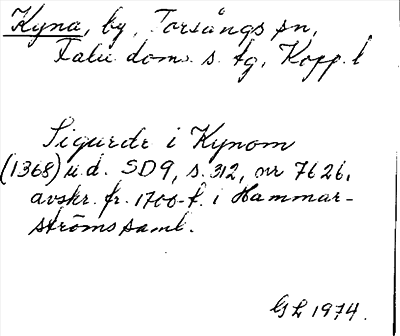 Kyna, by, Torsångs sn,
Falu doms. s. tg, Kopp. l
Sigurdr i Kynom
(1368) u.d. SD9, s. 312, nr 7626,
avskr. fr. 1700-t. i Hammar-
ströms saml.
GL 1974.